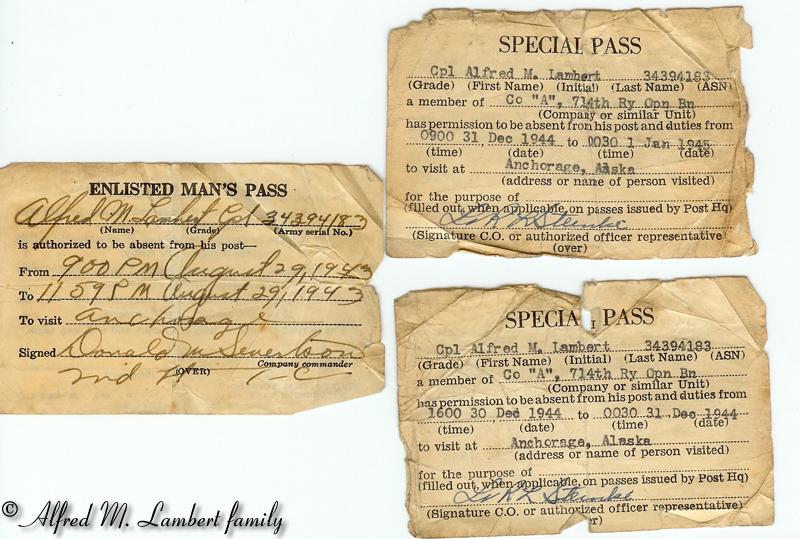 ENLISTED MAN'S PASS
Alfred M Lambert Cpl 34394183
(Name) (Grade) (Army serial No.)
is authorized to be absent from his post—
From 9 00 PM August 29, 1943
To 11 59 PM August 29, 1943
To visit anchorage
Signed Donald M Severtson
Company commander
(OVER)
SPECIAL PASS
Cpl Alfred M. Lambert 34394183
(Grade) (First Name) (Initial) (Last Name) (ASN)
a member of Co "A", 714th Ry Opn Bn
(Company or similar Unit)
has permission to be absent from his post and duties from
0900 31 Dec 1944 to 0030 1 Jan 1945
(time) (date) (time) (date)
to visit at Anchorage, Alaska
(address or name of person visited)
for the purpose of
(filled out, when applicable, on passes issued by Post Hq)
Lt R R Steinke
(Signature C.O. or authorized officer representative)
(over)
SPECIAL PASS
Cpl Alfred M. Lambert 34394183
(Grade) (First Name) (Initial) (Last Name) (ASN)
a member of Co "A", 714th Ry Opn Bn
(Company or similar Unit)
has permission to be absent from his post and duties from
1600 30 Dec 1944 to 0030 31 Dec 1944
(time) (date) (time) (date)
to visit at Anchorage, Alaska
(address or name of person visited)
for the purpose of
(filled out, when applicable, on passes issued by Post Hq)
Lt R R Steinke
(Signature C.O. or authorized officer representative)
r)
© Alfred M. Lambert family